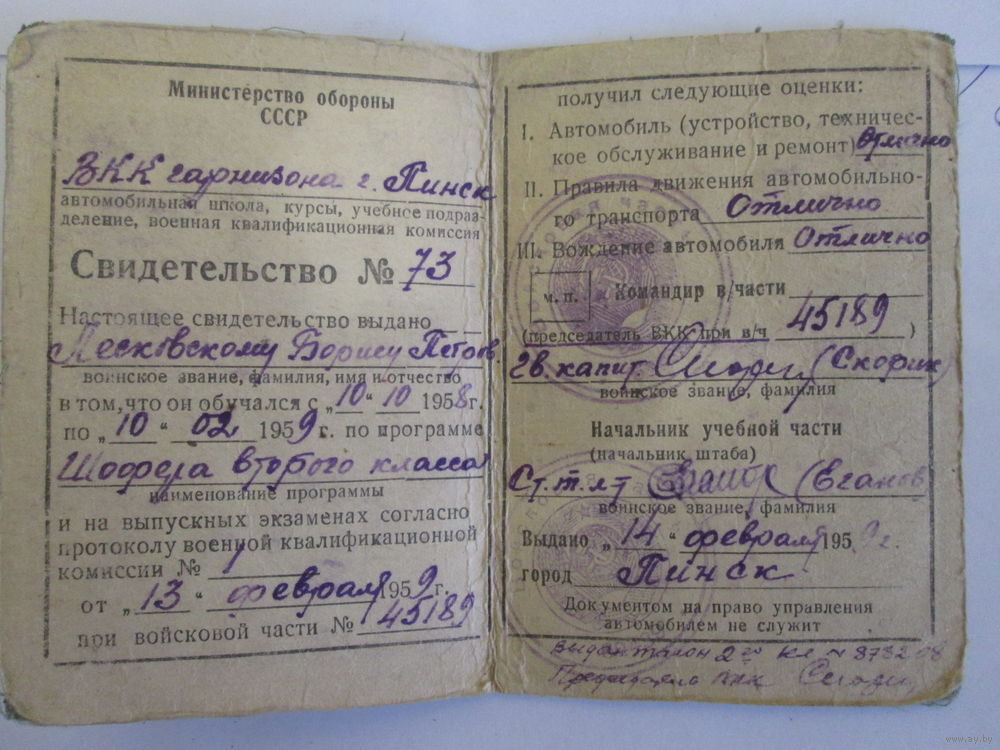 Министерство обороны
СССР
ВКК гарнизона г. Пинск
автомобильная школа, курсы, учебное подраз-
деление, военная квалификационная комиссия
Свидетельство № 73
Настоящее свидетельство выдано
Лесковскому Борису Петров
воинское звание, фамилия, имя и отчество
в том, что он обучался с „10“ 10 1958 г.
по „10“ 02 1959 г. по программе
Шофера второго класса
наименование программы
и на выпускных экзаменах согласно
протоколу военной квалификационной
комиссии № 1
от „13“ февраля 1959 г.
при войсковой части № 45189
получил следующие оценки:
I. Автомобиль (устройство, техничес-
кое обслуживание и ремонт) Отлично
II. Правила движения автомобильно-
го транспорта Отлично
III. Вождение автомобиля Отлично
м. п. Командир в/части
(председатель ВКК при в/ч 45189)
гв. капит. (Скорик)
воинское звание, фамилия
Начальник учебной части
(начальник штаба)
Ст. т. лт (Еганов
воинское звание, фамилия
Выдано „14“ февраля 1959 г.
город Пинск
Документом на право управления
автомобилем не служит
Выдан талон 2го кл №
Председатель ВКК
www.ay.by